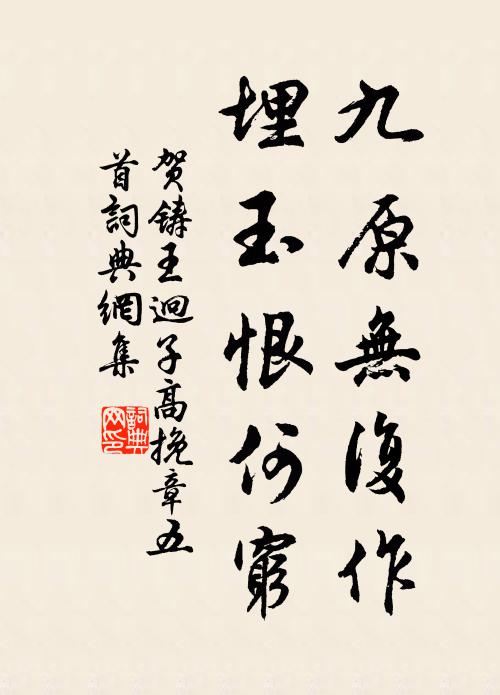 九原無復作
埋玉恨何窮
贺鑄王迥子高挽章五
首詞典網集
詞典
网印